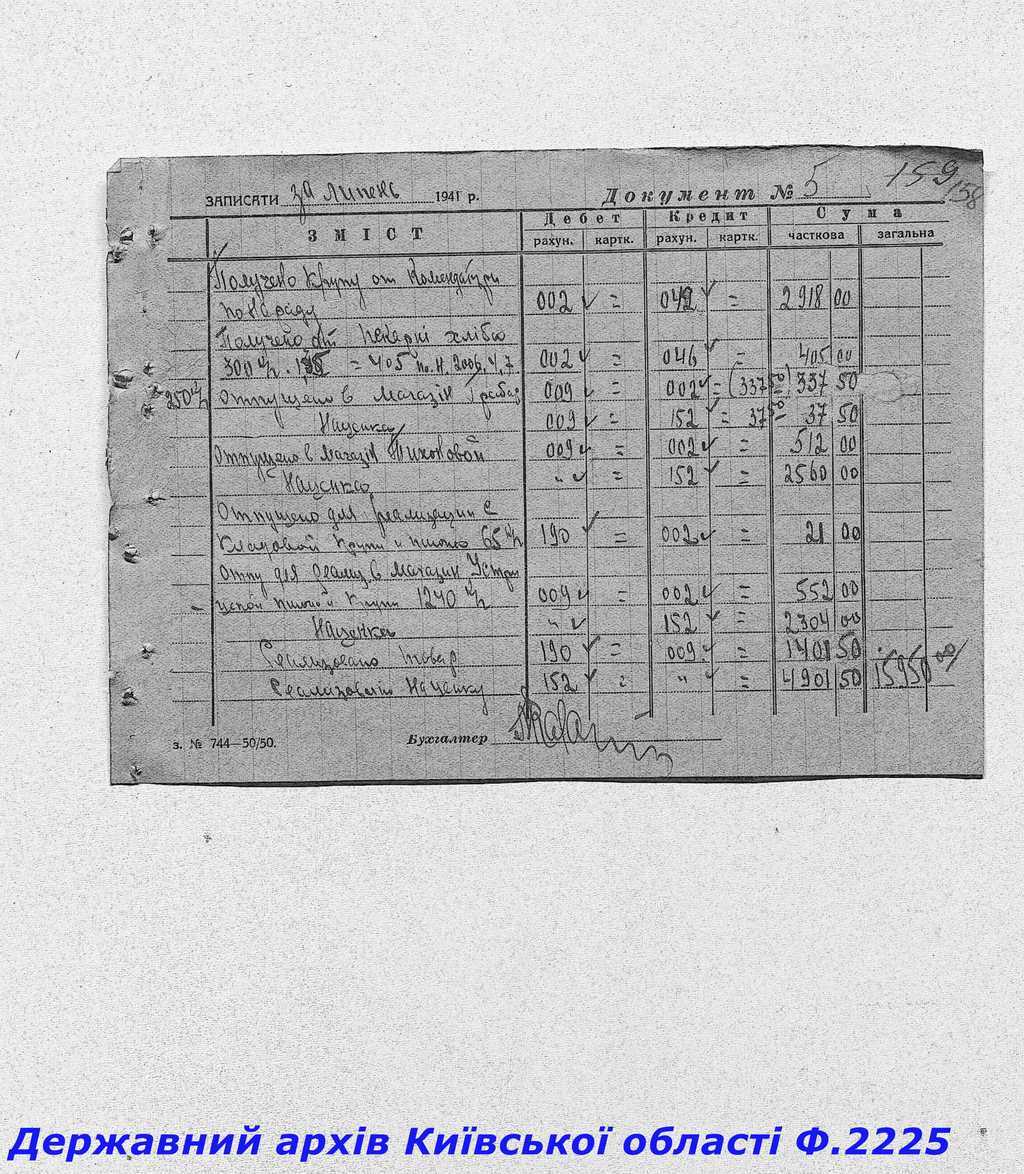 ЗАПИСАТИ за липень 1941 р. Документ № 5 159 158
ЗМІСТ Дебет Кредит Сума
рахун. картк. рахун. картк. часткова загальна
Получено крупу от
по наряду 002 = 042 = 2918 00
Получено от пекарні хлібо
300 = 405 по н. 002 = 046 = 405 00
250 Отпущено в магазін 009 = 002 = (337 50) 337 50
Наценка 009 = 152 = 37 50 37 50
Отпущено в магазін Тихоновой 009 = 002 = 512 00
Наценка " 152 = 2560 00
Отпущено для реализации с
кладовой крупи и пшоно 65 190 = 002 = 21 00
Отпу для реализ. в магазин
крупи 1240 009 = 002 = 552 00
Наценка " 152 = 2304 00
Реализовано товар 190 = 009 = 1401 50
Реализовано наценку 152 = " = 4901 50 15950 00
з. № 744—50/50. Бухгалтер
Державний архів Київської області Ф.2225